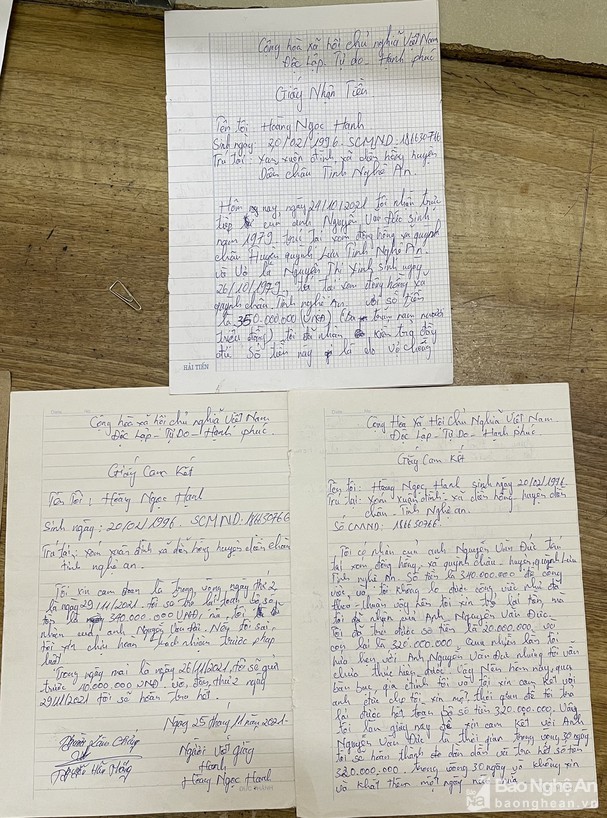 Cộng hòa xã hội chủ nghĩa Việt Nam
Độc Lập - Tự do - Hạnh phúc
Giấy Nhận Tiền
Tên tôi Hoàng Ngọc Hạnh
Sinh ngày: 20/02/1996. SCMND:
Trú tại: xóm xuân đình xã diễn hồng huyện
Diễn châu Tỉnh Nghệ An.
Hôm nay, ngày 24/10/2021 Tôi nhận trực
tiếp của anh Nguyễn Văn Đức sinh
năm 1979 trú tại xóm đồng hồng xã quỳnh
châu Huyện quỳnh Lưu Tỉnh Nghệ An.
và Vợ là Nguyễn Thị Xinh sinh ngày
26/10/1979, trú tại xóm đồng hồng xã
quỳnh châu Tỉnh nghệ An. với số tiền
là 350.000.000 (VNĐ) (Ba trăm năm mươi
triệu đồng) tôi đã nhận kiểm tra đầy
đủ. Số tiền này là do vợ chồng
HẢI TIẾN
Cộng hòa xã hội chủ nghĩa Việt Nam
Độc Lập - Tự Do - Hạnh phúc.
Giấy Cam Kết
Tên Tôi: Hoàng Ngọc Hạnh
Sinh ngày: 20/02/1996. SCMND:
Trú tại: xóm xuân đình xã diễn hồng huyện diễn châu
tỉnh nghệ an.
Tôi xin cam đoan là trong vòng ngày thứ 2
là ngày 29/11/2021. tôi sẽ trả lại toàn bộ số
tiền là 340.000.000 VNĐ, mà tôi
nhận của anh Nguyễn Văn Đức. Nếu tôi sai
tôi xin chịu hoàn trách nhiệm trước pháp
luật
Trong ngày mai là ngày 26/11/2021 tôi sẽ gửi
trước 10.000.000 VNĐ. và đến thứ 2 ngày
29/11/2021 tôi sẽ hoàn trả hết.
Ngày 25 tháng 11 năm 2021.
Người viết giấy
Hạnh
Hoàng Ngọc Hạnh
Cộng Hòa Xã Hội Chủ Nghĩa Việt Nam
Độc Lập - Tự Do - Hạnh phúc.
Giấy Cam Kết
Tên tôi: Hoàng Ngọc Hạnh sinh ngày 20/02/1996.
Trú tại: xóm xuân đình xã diễn hồng huyện diễn
châu - Tỉnh nghệ an.
Số CMND:
Tôi có nhận của anh Nguyễn Văn Đức trú
tại xóm đồng hồng, xã quỳnh châu - huyện quỳnh Lưu
Tỉnh nghệ An. Số tiền là 340.000.000 để công
việc, và tôi không lo được công việc như đã
theo thuận vậy nên tôi xin trả lại tiền mà
tôi đã nhận của Anh Nguyễn Văn Đức.
Tôi đã trả được số tiền là 20.000.000. và
còn lại là 320.000.000 qua nhiều lần tôi
hứa hẹn với Anh Nguyễn Văn Đức nhưng tôi vẫn
chưa thực hiện được. Vậy nên hôm nay, qua
bàn bạc, gia đình tôi và tôi xin cam kết với
anh đức cho tôi xin một thời gian để tôi trả
lại được hết toàn bộ số tiền 320.000.000. Vậy
tôi làm giấy này để xin cam kết với Anh
Nguyễn Văn Đức là thời gian trong vòng 30 ngày
tôi sẽ hoàn thành để dần dần và trả hết số tiền
320.000.000 trong vòng 30 ngày và không xin
và khất thêm một ngày nào nữa
Báo Nghệ An
baonghean.vn